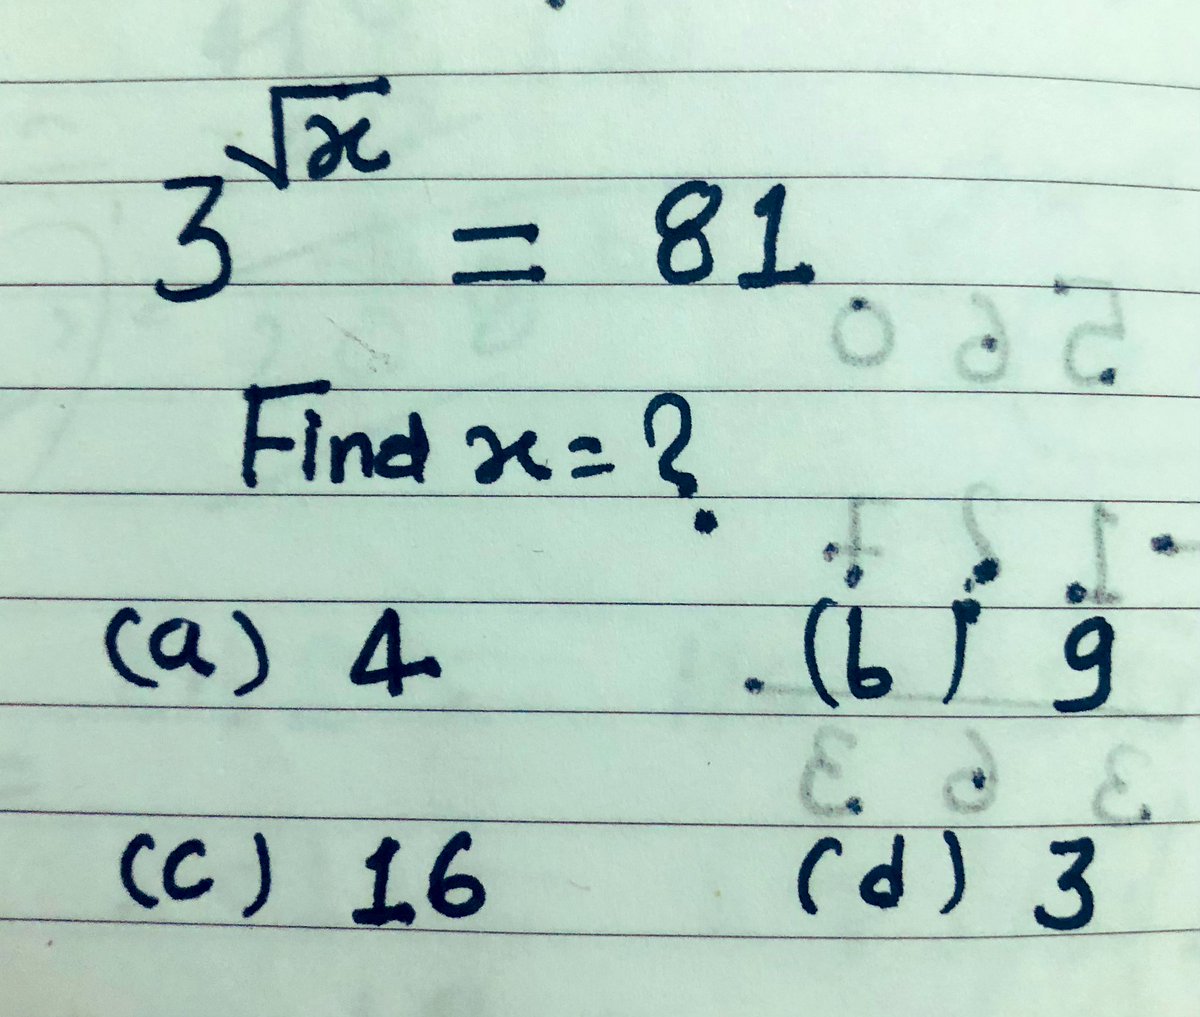 3^√x = 81
Find x = ?
(a) 4 (b) 9
(c) 16 (d) 3